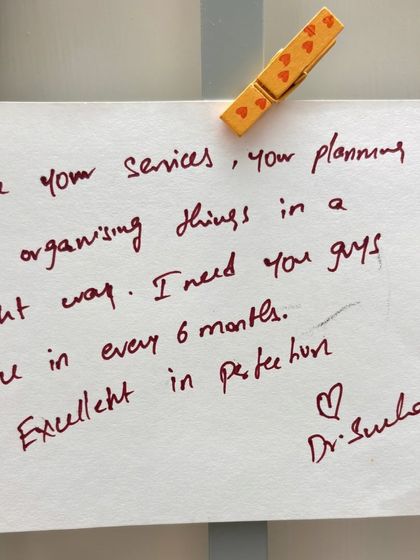 your services, your planning
organising things in a
way. I need you guys
in every 6 months.
Excellent in perfection
Dr.